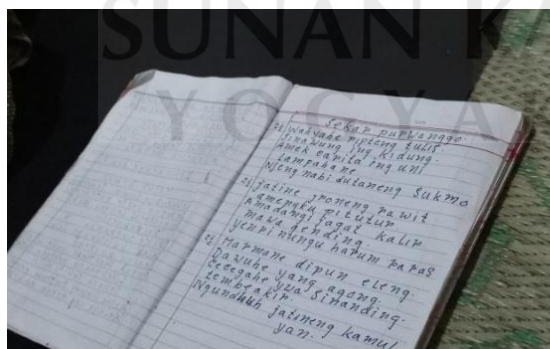 SUNAN KA
YOGYA
Sekar purwanggo.
Wahyahe ripteng tulis
Sinawung ing kidung.
Amek carita ing uni
Lampahane
Ngeng nabi dutaneng Sukmo
Jatine jroneng rawit
amengku pitutur
Amadangi jagat kalir
mawa gending.
yen pi nungu harum raras
Marmane dipun eleng.
Dawuhe yang agong.
cecegahe ywa sinanding.
tembe akir.
Ngundhuh jatineng kamul
yan.